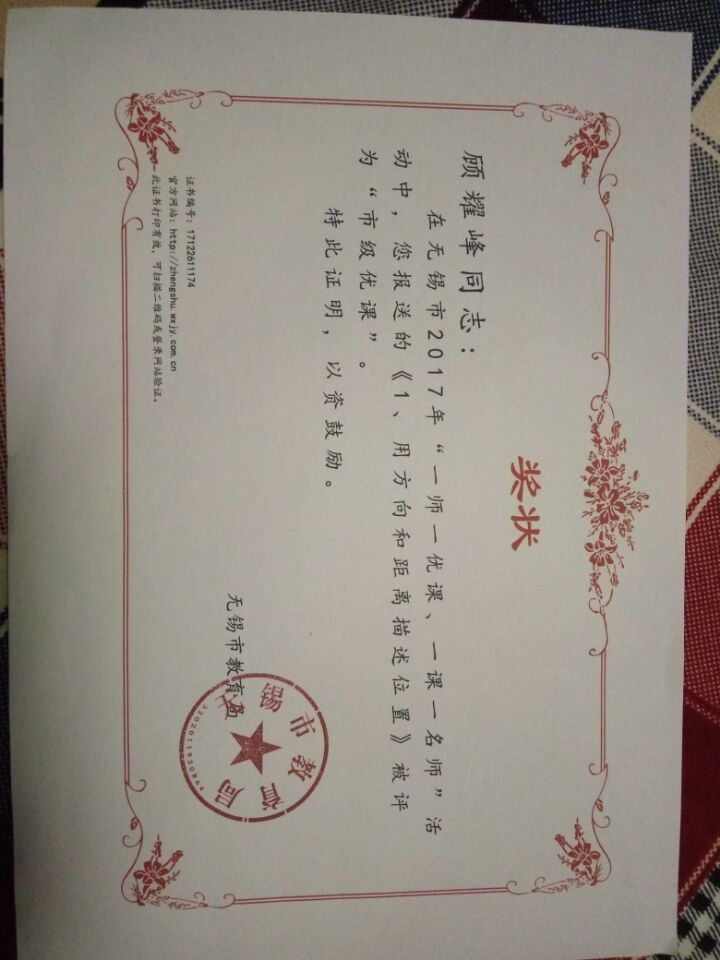 奖状
顾耀峰同志：
在无锡市2017年“一师一优课、一课一名师”活
动中，您报送的《1、用方向和距离描述位置》被评
为“市级优课”。
特此证明，以资鼓励。
无锡市教育局
无锡市教育局
证书编号：17122611174
官方网站：http://zhengshu.wxjy.com.cn
此证书打印有效，可扫描二维码或登录网站验证。